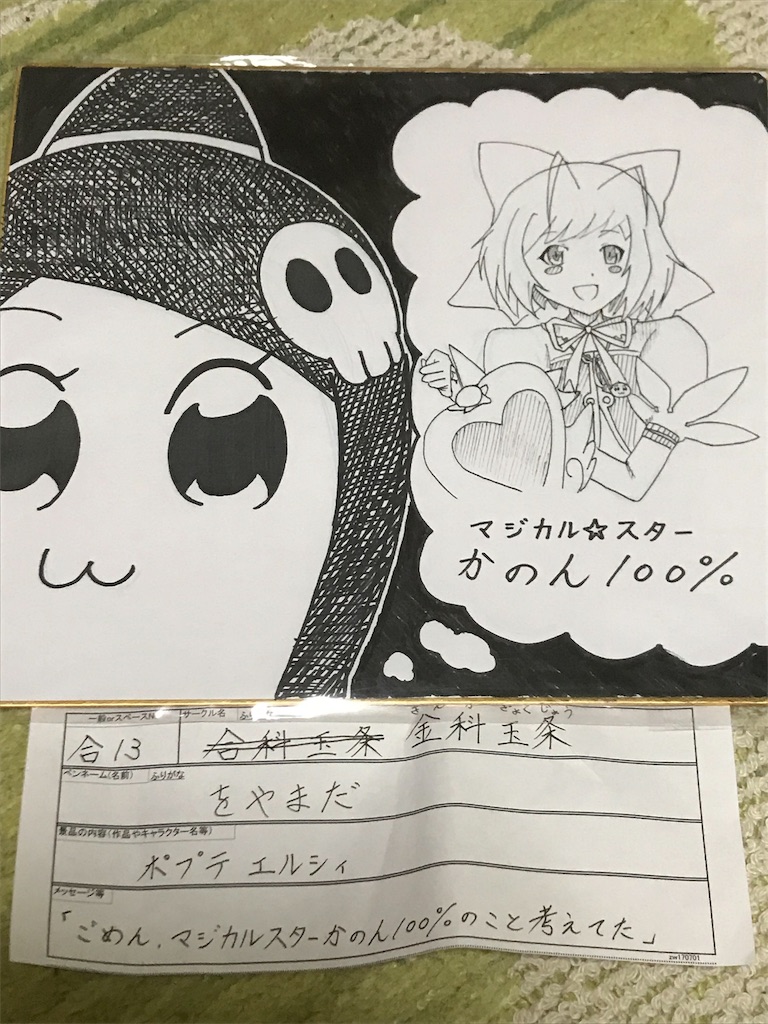 マジカル☆スター
かのん100%
一般orスペースNo サークル名 ふりがな きん か ぎょくじょう
合13 合科玉条 金科玉条
ペンネーム(名前) ふりがな
をやまだ
景品の内容(作品やキャラクター名等)
ポプテ エルシィ
メッセージ等
「ごめん、マジカルスターかのん100%のこと考えてた」
zw170701